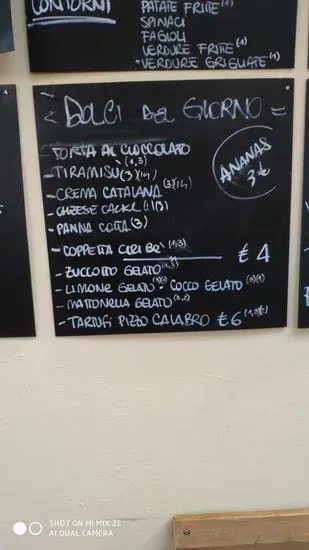 CONTORNI
PATATE FRITTE (1)
SPINACI
FAGIOLI
VERDURE FRITTE (1)
• VERDURE GRIGLIATE (1)
< DOLCI DEL GIORNO =
- TORTA AL CIOCCOLATO (1,3)
- TIRAMISU (3)(14)
- CREMA CATALANA (3)(14)
- CHEESE CACKE (1)(3)
- PANNA COTTA (3)
ANANAS
3 €
- COPPETTA (1,3) € 4
- ZUCCOTTO GELATO (1,3)
- LIMONE GELATO - COCCO GELATO
- MATTONELLA GELATO
- TARTUFI PIZZO CALABRO € 6
SHOT ON MI MIX 2S
AI DUAL CAMERA